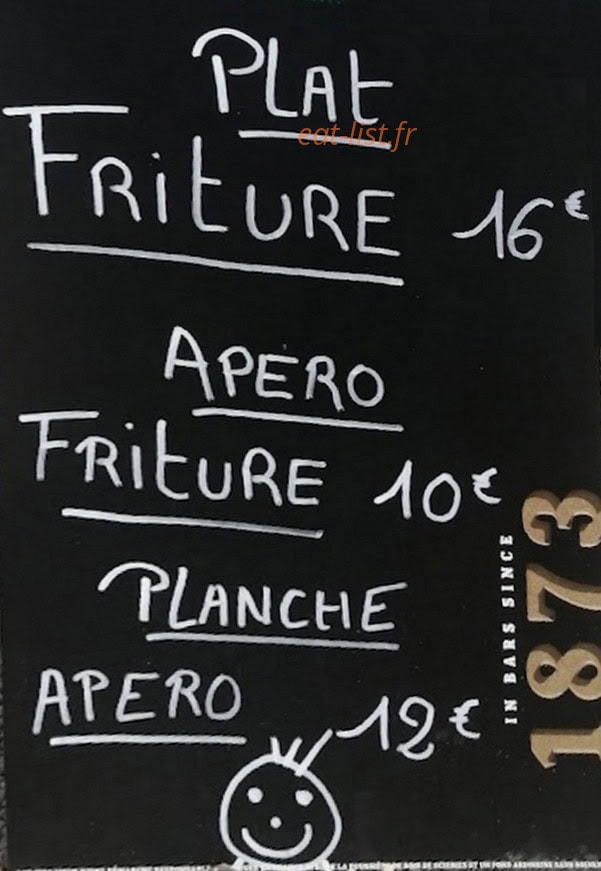 PLAT
eat-list.fr
FRITURE 16€
APERO
FRITURE 10€
PLANCHE
APERO 12€
IN BARS SINCE
1873